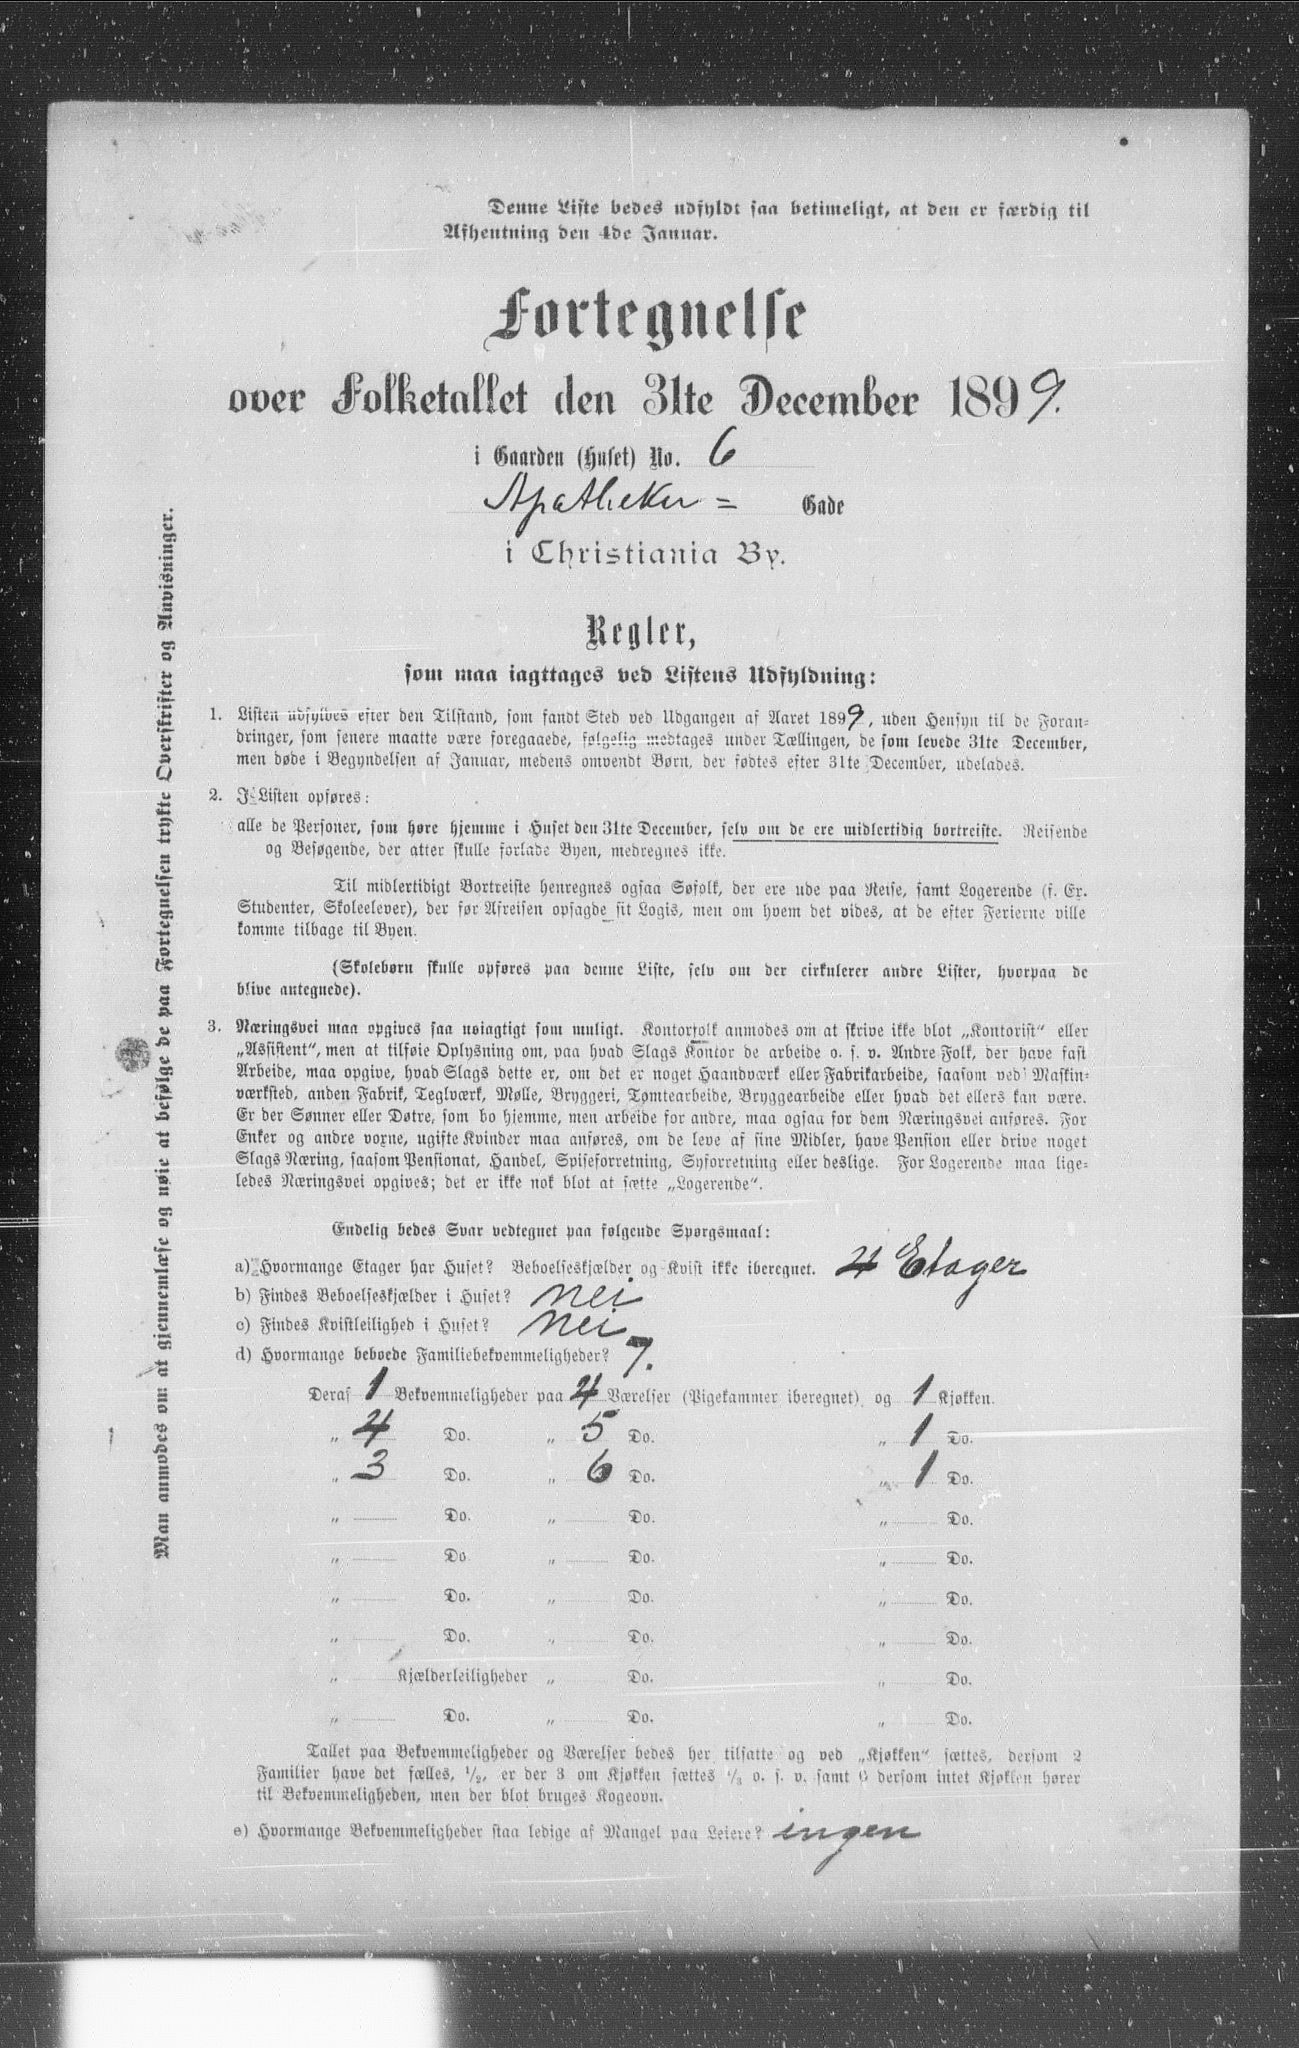 Denne Liste bedes udfyldt saa betimeligt, at den er færdig til
Afhentning den 4de Januar.
Fortegnelse
over Folketallet den 31te December 1899.
i Gaarden (Huset) No. 6
Apotheker= Gade
i Christiania By.
Regler,
som maa iagttages ved Listens Udfyldning:
1. Listen udfyldes efter den Tilstand, som fandt Sted ved Udgangen af Aaret 1899, uden Hensyn til de Foran-
dringer, som senere maatte være foregaaede, følgelig medtages under Tællingen, de som levede 31te December,
men døde i Begyndelsen af Januar, medens omvendt Børn, der fødtes efter 31te December, udelades.
2. I Listen opføres:
alle de Personer, som høre hjemme i Huset den 31te December, selv om de ere midlertidig bortreiste. Reisende
og Besøgende, der atter skulle forlade Byen, medregnes ikke.
Til midlertidigt Bortreiste henregnes ogsaa Søfolk, der ere ude paa Reise, samt Logerende (f. Ex.
Studenter, Skoleelever), der før Afreisen opsagde sit Logis, men om hvem det vides, at de efter Ferierne ville
komme tilbage til Byen.
(Skolebørn skulle opføres paa denne Liste, selv om der cirkulerer andre Lister, hvorpaa de
blive antegnede).
3. Næringsvei maa opgives saa nøiagtigt som muligt. Kontorfolk anmodes om at skrive ikke blot „Kontorist" eller
„Assistent", men at tilføie Oplysning om, paa hvad Slags Kontor de arbeide o. s. v. Andre Folk, der have fast
Arbeide, maa opgive, hvad Slags dette er, om det er noget Haandværk eller Fabrikarbeide, saasom ved Maskin-
værksted, anden Fabrik, Teglværk, Mølle, Bryggeri, Tømtearbeide, Bryggearbeide eller hvad det ellers kan være.
Er der Sønner eller Døtre, som bo hjemme, men arbeide for andre, maa ogsaa for dem Næringsvei anføres. For
Enker og andre voxne, ugifte Kvinder maa anføres, om de leve af sine Midler, have Pension eller drive noget
Slags Næring, saasom Pensionat, Handel, Spiseforretning, Syforretning eller deslige. For Logerende maa lige-
ledes Næringsvei opgives; det er ikke nok blot at sætte „Logerende".
Endelig bedes Svar vedtegnet paa følgende Spørgsmaal:
a) Hvormange Etager har Huset? Beboelseskjælder og Kvist ikke iberegnet. 4 Etager
b) Findes Beboelseskjælder i Huset? nei
c) Findes Kvistleilighed i Huset? nei
d) Hvormange beboede Familiebekvemmeligheder? 7.
Deraf 1 Bekvemmeligheder paa 4 Værelser (Pigekammer iberegnet) og 1 Kjøkken.
„ 4 Do. „ 5 Do. „ 1 Do.
„ 3 Do. „ 6 Do. „ 1 Do.
„ Do. „ Do. „ Do.
„ Do „ Do. „ Do.
„ Do. „ Do. „ Do.
„ Do. „ Do. „ Do.
„ Kjælderleiligheder „ Do. „ Do.
„ Do. „ Do. „ Do.
Tallet paa Bekvemmeligheder og Værelser bedes her tilsatte og ved „Kjøkken" sættes, dersom 2
Familier have det fælles, 1/2, er der 3 om Kjøkken sættes 1/3 o. s. v. samt 0 dersom intet Kjøkken hører
til Bekvemmeligheden, men der blot bruges Kogeovn.
e) Hvormange Bekvemmeligheder staa ledige af Mangel paa Leiere? ingen
Man anmodes om at gjennemlæse og nøie at befølge de paa Fortegnelsen trykte Overskrifter og Anvisninger.